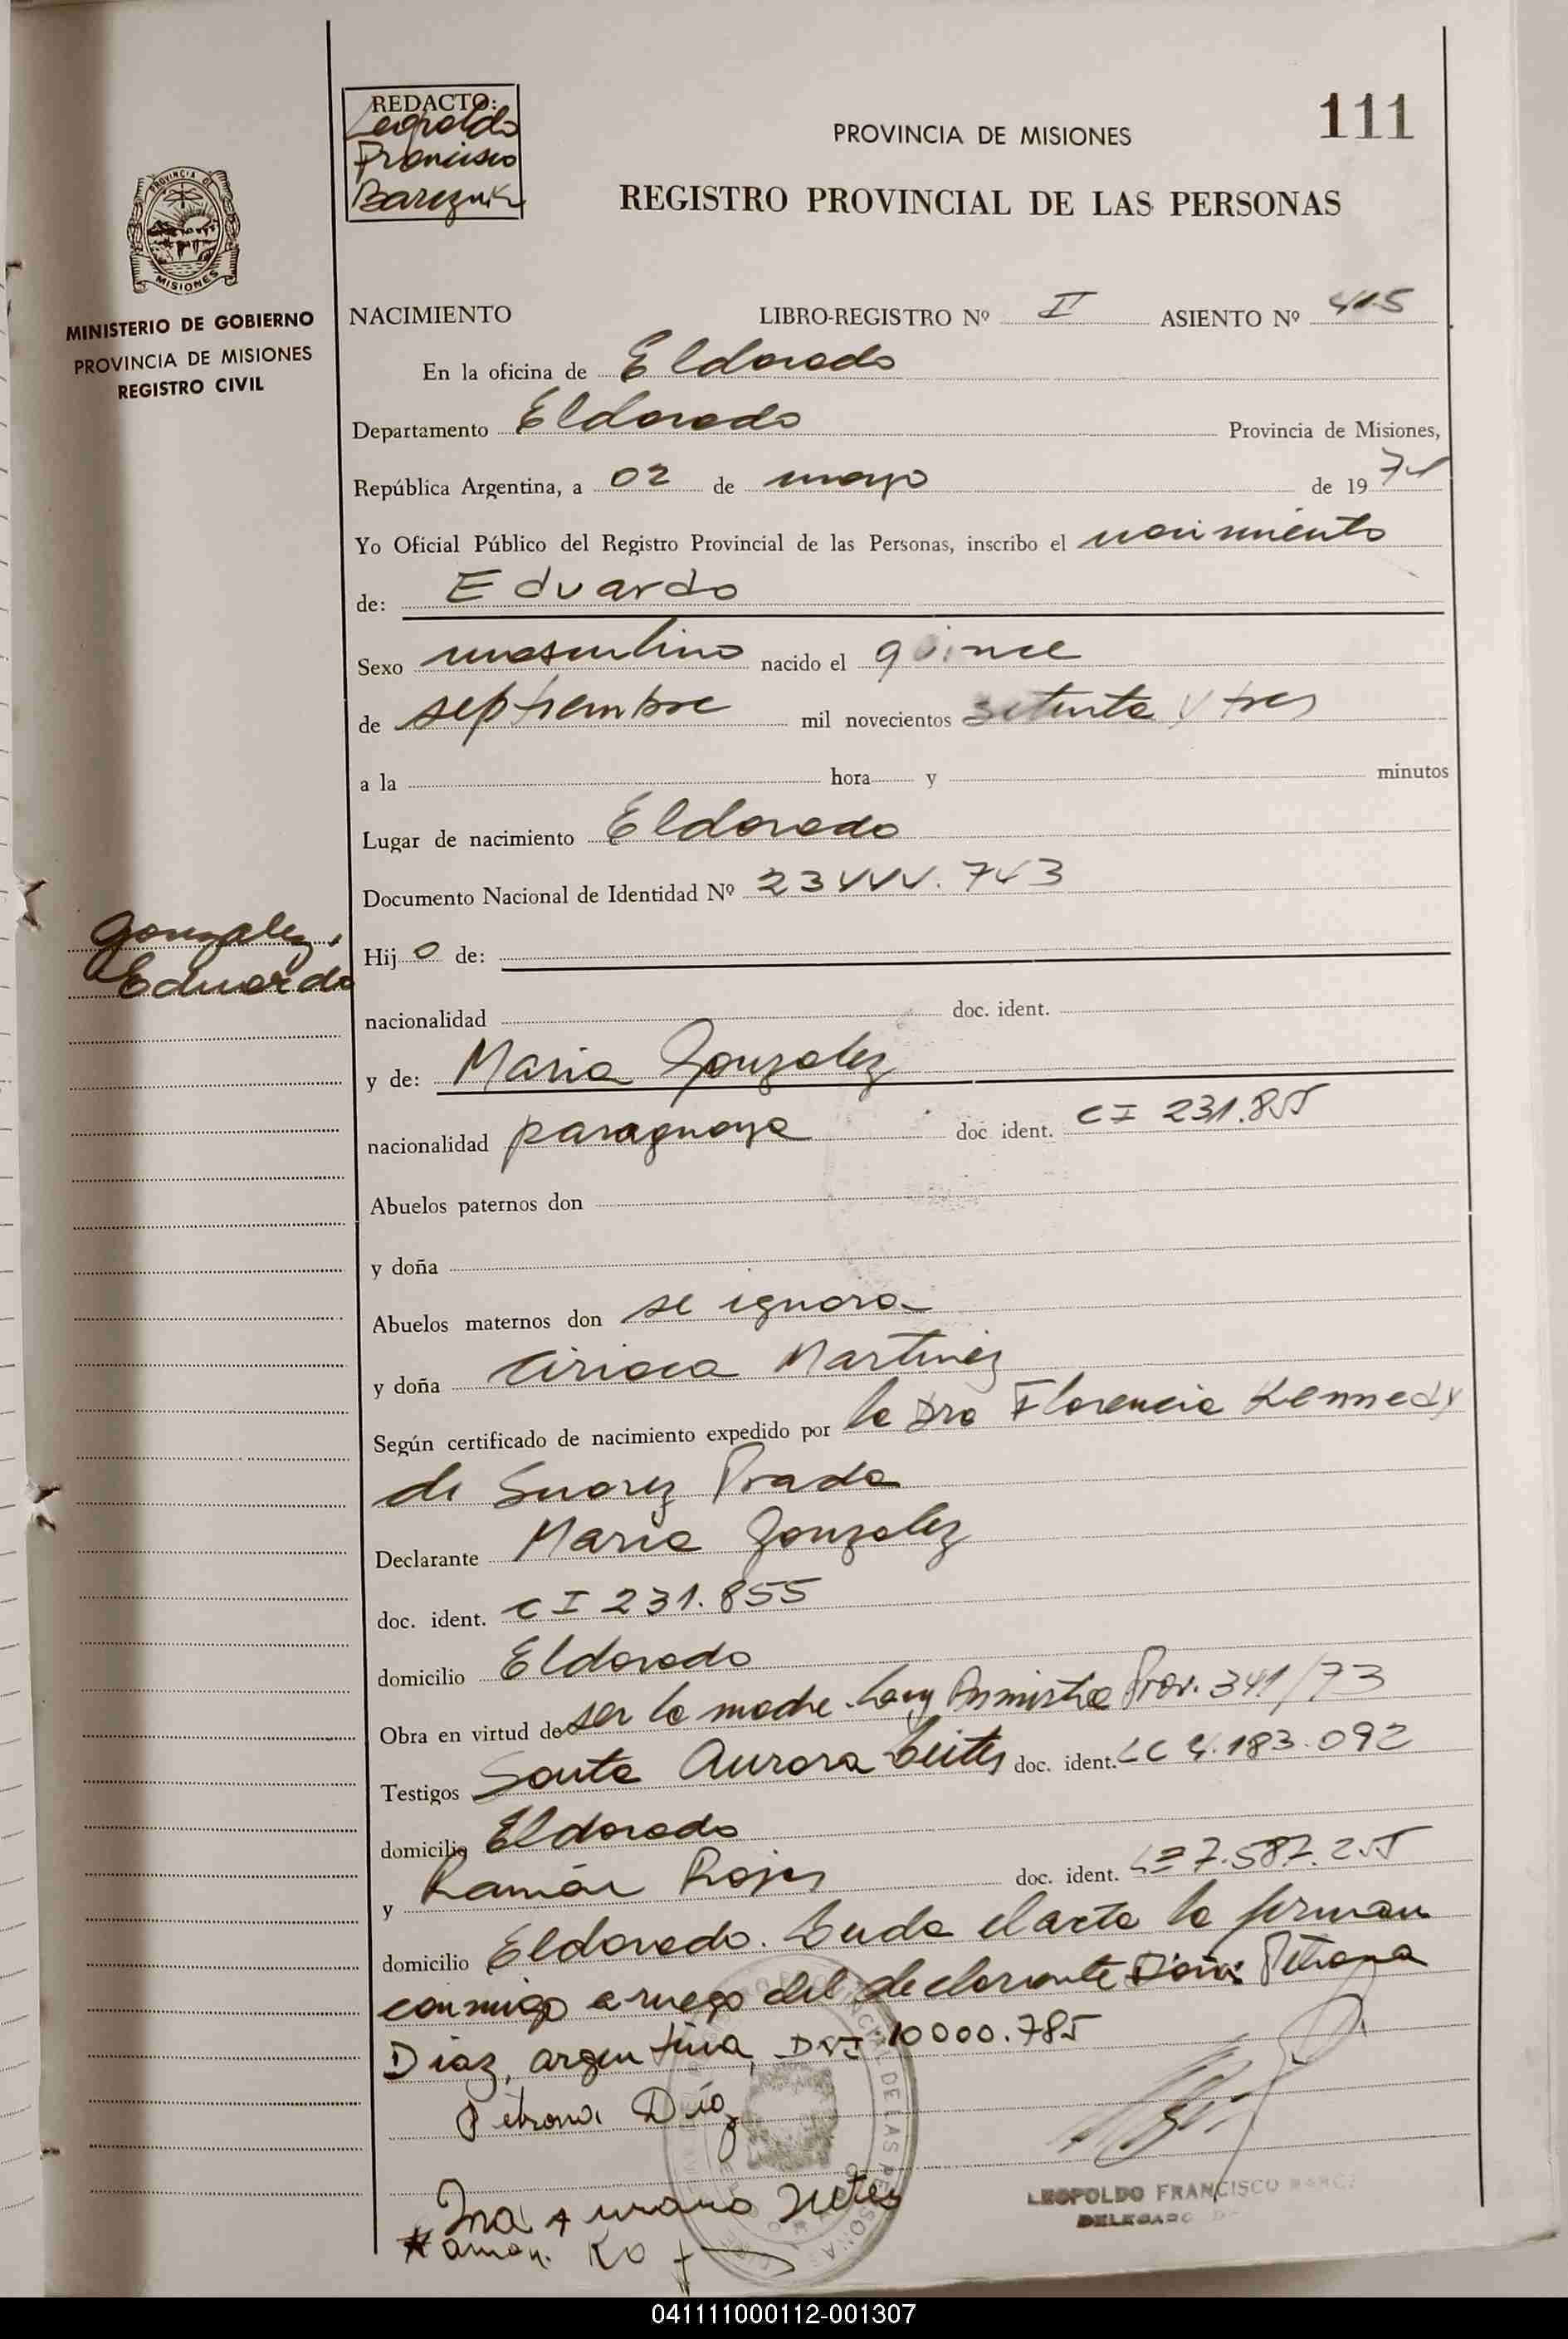 111
REDACTO:
Leopoldo
Francisco
PROVINCIA DE MISIONES
REGISTRO PROVINCIAL DE LAS PERSONAS
PROVINCIA DE
MISIONES
MINISTERIO DE GOBIERNO
PROVINCIA DE MISIONES
REGISTRO CIVIL
NACIMIENTO LIBRO-REGISTRO Nº II ASIENTO Nº 415
En la oficina de Eldorado
Departamento Eldorado Provincia de Misiones,
República Argentina, a 02 de mayo de 19
Yo Oficial Público del Registro Provincial de las Personas, inscribo el nacimiento
de: Eduardo
Sexo masculino nacido el quince
de septiembre mil novecientos setenta y tres
a la hora y minutos
Lugar de nacimiento Eldorado
Documento Nacional de Identidad Nº
Gonzalez,
Eduardo
Hijo de:
nacionalidad doc. ident.
y de: Maria Gonzalez
nacionalidad paraguaya doc ident. CI 231.855
Abuelos paternos don
y doña
Abuelos maternos don se ignora
y doña Martinez
Según certificado de nacimiento expedido por la Dra Florencia Kennedy
de Suarez Prada
Declarante Maria Gonzalez
doc. ident. CI 231.855
domicilio Eldorado
Obra en virtud de ser la madre. Ley Amnistia Prov. 341/73
Testigos Santa Aurora doc. ident. LC 4.183.092
domicilio Eldorado
y Ramón Rojas doc. ident. LE 7.587.255
domicilio Eldorado. Leida el acta la firman
conmigo a ruego del declarante Doña Petrona
Diaz, argentina, DNI 10000.785
Petrona Díaz
LEOPOLDO FRANCISCO
DELEGADO
041111000112-001307